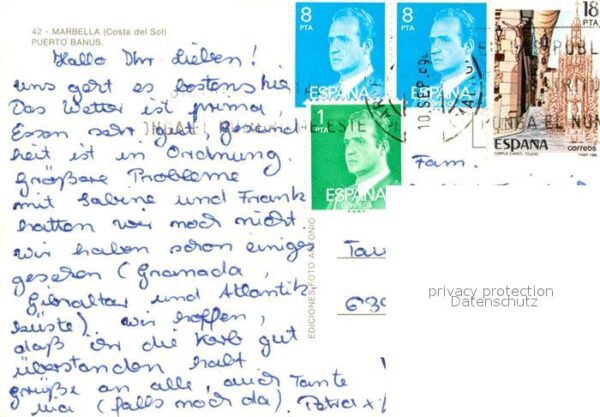 42 - MARBELLA (Costa del Sol)
PUERTO BANUS.
Hallo Ihr Lieben!
uns geht es bestens hier
Das Wetter ist prima,
Essen sehr gut, Gesund
heit ist in Ordnung.
Größere Probleme
mit Sabine und Frank
hatten wir noch nicht.
wir haben schon einiges
gesehen (Granada,
Gibraltar und Atlantik-
küste). Wir hoffen,
daß ihr die Kerb gut
überstanden habt
grüße an alle, auch Tante
(falls noch da). Petra +
8
PTA
ESPAÑA
8
PTA
ESPAÑA
18
PTA
ESPAÑA
correos
CORPUS CHRISTI. TOLEDO
1
PTA
ESPAÑA
CORREOS
10 SEP
PONGA EL
Fam.
EDICIONES FOTO ANTONIO
privacy protection
Datenschutz